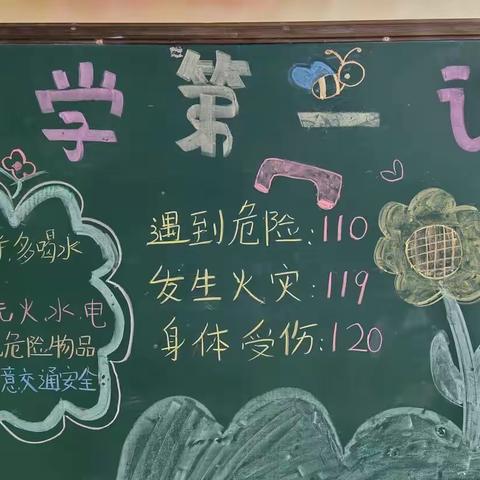 学第一课
多喝水
火、水、电
危险物品
意交通安全
遇到危险:110
发生火灾:119
身体受伤:120